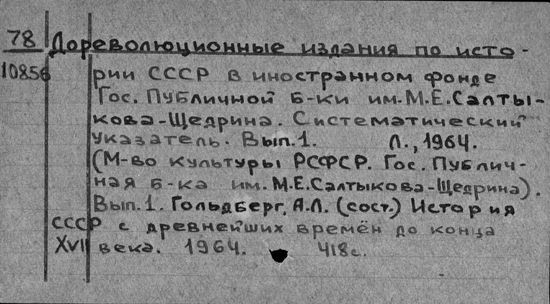 78 Дореволюционные издания по исто-
10856 рии СССР в иностранном фонде
Гос. Публичной Б-ки им. М.Е. Салты-
кова-Щедрина. Систематический
указатель. Вып. 1. Л., 1964.
(М-во культуры РСФСР. Гос. Публич-
ная б-ка им. М.Е. Салтыкова-Щедрина).
Вып. 1. Гольдберг, А.Л. (сост.) История
СССР с древнейших времён до конца
XVII века. 1964. 418с.